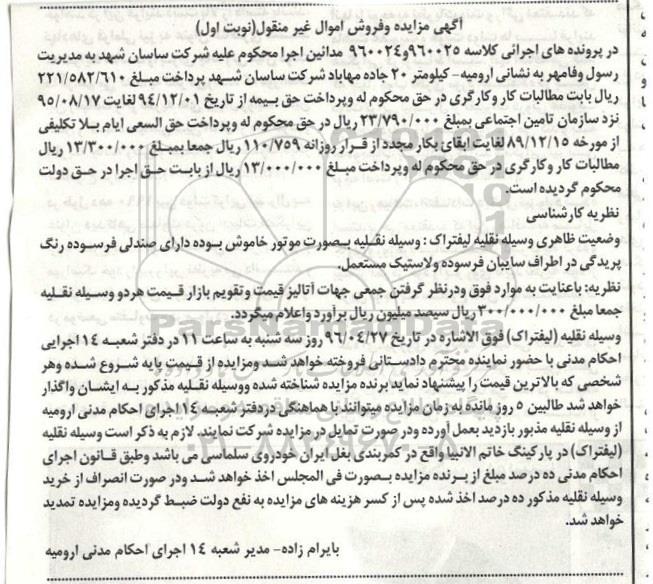 آگهی مزایده وفروش اموال غیر منقول(نوبت اول)
در پرونده های اجرائی کلاسه ۹۶۰۰۲۵و۹۶۰۰۲۴ مدائین اجرا محکوم علیه شرکت ساسان شهد به مدیریت
رسول وفامهر به نشانی ارومیه- کیلومتر ۲۰ جاده مهاباد شرکت ساسان شهد پرداخت مبلغ ۲۲۱/۵۸۲/۶۱۰
ریال بابت مطالبات کار وکارگری در حق محکوم له وپرداخت حق بیمه از تاریخ ۹۴/۱۲/۰۱ لغایت ۹۵/۰۸/۱۷
نزد سازمان تامین اجتماعی بمبلغ ۲۳/۷۹۰/۰۰۰ ریال در حق محکوم له وپرداخت حق السعی ایام بلا تکلیفی
از مورخه ۸۹/۱۲/۱۵ لغایت ابقای بکار مجدد از قرار روزانه ۱۱۰/۷۵۹ ریال جمعا بمبلغ ۱۳/۳۰۰/۰۰۰ ریال
مطالبات کار و کارگری در حق محکوم له وپرداخت مبلغ ۱۳/۰۰۰/۰۰۰ ریال از بابت حق اجرا در حق دولت
محکوم گردیده است.
نظریه کارشناسی
وضعیت ظاهری وسیله نقلیه لیفتراک : وسیله نقلیه بصورت موتور خاموش بوده دارای صندلی فرسوده رنگ
پریدگی در اطراف سایبان فرسوده ولاستیک مستعمل.
نظریه: باعنایت به موارد فوق ودرنظر گرفتن جمعی جهات آنالیز قیمت وتقویم بازار قیمت هردو وسیله نقلیه
جمعا مبلغ ۳۰۰/۰۰۰/۰۰۰ ریال سیصد میلیون ریال برآورد واعلام میگردد.
وسیله نقلیه (لیفتراک) فوق الاشاره در تاریخ ۹۶/۰۴/۲۷ روز سه شنبه به ساعت ۱۱ در دفتر شعبه ۱۴ اجرایی
احکام مدنی با حضور نماینده محترم دادستانی فروخته خواهد شد ومزایده از قیمت پایه شروع شده وهر
شخصی که بالاترین قیمت را پیشنهاد نماید برنده مزایده شناخته شده ووسیله نقلیه مذکور به ایشان واگذار
خواهد شد طالبین ۵ روز مانده به زمان مزایده میتوانند با هماهنگی دردفتر شعبه ۱۴ اجرای احکام مدنی ارومیه
از وسیله نقلیه مذبور بازدید بعمل آورده ودر صورت تمایل در مزایده شرکت نمایند. لازم به ذکر است وسیله نقلیه
(لیفتراک) در پارکینگ خاتم الانبیا واقع در کمربندی بغل ایران خودروی سلماسی می باشد وطبق قانون اجرای
احکام مدنی ده درصد مبلغ از برنده مزایده بصورت فی المجلس اخذ خواهد شد ودر صورت انصراف از خرید
وسیله نقلیه مذکور ده درصد اخذ شده پس از کسر هزینه های مزایده به نفع دولت ضبط گردیده ومزایده تمدید
خواهد شد.
بایرام زاده- مدیر شعبه ۱۴ اجرای احکام مدنی ارومیه
ParsNamadData